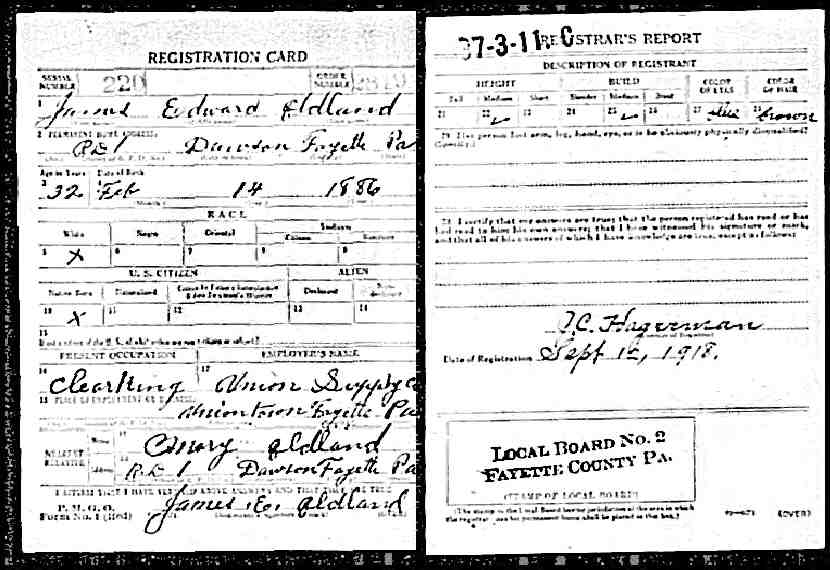 REGISTRATION CARD
SERIAL NUMBER 220 ORDER NUMBER
1 James Edward Oldland
2 PERMANENT HOME ADDRESS:
RD 1 Dawson Fayette Pa
Age in Years Date of Birth
3 32 4 Feb 14 1886
RACE
White Negro Oriental Indian
Citizen Noncitizen
5 X 6 7 8 9
U. S. CITIZEN ALIEN
Native Born Naturalized Citizen by Father's Naturalization Before Registrant's Majority Declarant Non-declarant
10 X 11 12 13 14
15
If not a citizen of the U. S., of what nation are you a citizen or subject?
PRESENT OCCUPATION EMPLOYER'S NAME
16 Clearking 17 Union Supply Co
18 PLACE OF EMPLOYMENT OR BUSINESS:
Uniontown Fayette Pa
NEAREST RELATIVE Name 19 Mary Oldland
Address 20 RD 1 Dawson Fayette Pa
I AFFIRM THAT I HAVE VERIFIED ABOVE ANSWERS AND THAT THEY ARE TRUE
P. M. G. O.
Form No. 1 (Red) James E. Oldland
37-3-11 C REGISTRAR'S REPORT
DESCRIPTION OF REGISTRANT
HEIGHT BUILD COLOR OF EYES COLOR OF HAIR
Tall Medium Short Slender Medium Stout
21 22 ✓ 23 24 25 ✓ 26 27 blue 28 brown
29 Has person lost arm, leg, hand, eye, or is he obviously physically disqualified?
(Specify.)
30 I certify that my answers are true; that the person registered has read or has
had read to him his own answers; that I have witnessed his signature or mark,
and that all of his answers of which I have knowledge are true, except as follows:
P.C. Hagerman
Date of Registration Sept 12, 1918.
LOCAL BOARD NO. 2
FAYETTE COUNTY PA.
(STAMP OF LOCAL BOARD)
(The stamp of the Local Board having jurisdiction of the area in which
the registrant has his permanent home shall be placed in this box.)
(OVER)